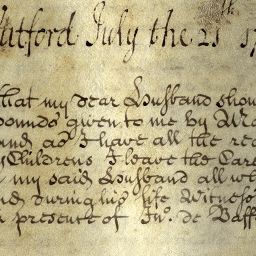 July the 21th 17
that my dear Husband shou
pounds given to me by
and as I have all the rea
Childrens I leave the Care
my said Husband all wh
and during his life Witness
presence of Jno. de Baff